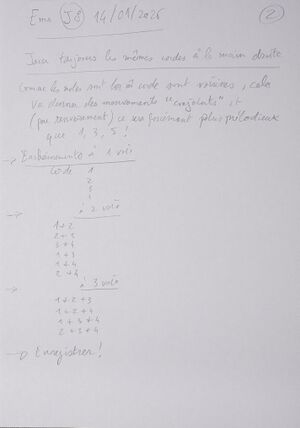 Ems JE 14/01/2026
2
Jouer toujours les mêmes cordes à la main droite
Comme les cordes sont voisines, cela
va donner des mouvements "conjoints", et
(par renversement) ce sera forcément plus mélodieux
que 1, 3, 5 !
→ Enchaînements à 1 voix
Corde 1
2
3
à 2 voix
1+2
2+3
3+4
1+3
1+4
2+4
→ à 3 voix
1+2+3
1+2+4
1+3+4
2+3+4
→ Enregistrer !